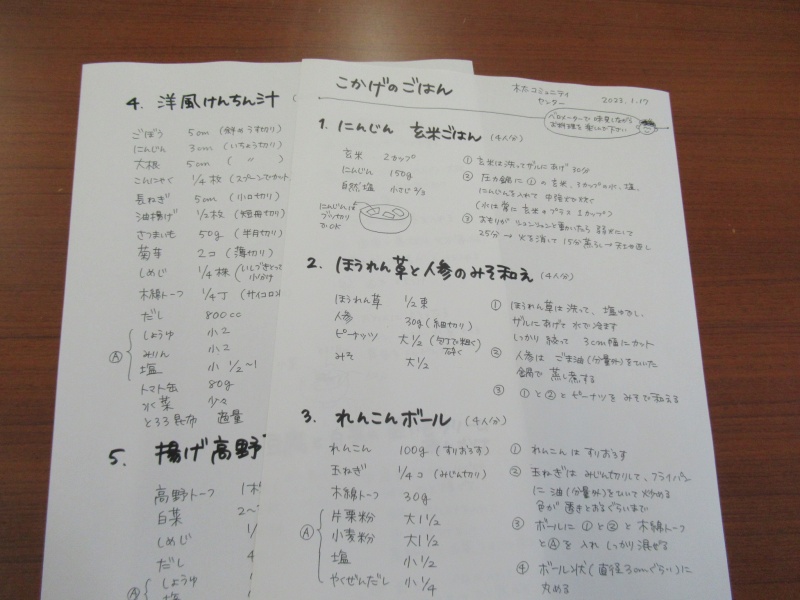 こかげのごはん
木太コミュニティ
センター
2023.1.17
お料理を楽しんで下さい
1. にんじん 玄米ごはん (4人分)
玄米 2カップ
にんじん 150g
自然塩 小さじ2/3
にんじんは
ブツ切り
でOK
① 玄米は洗ってザルにあげ 30分
② 圧力鍋に①の玄米、3カップの水、塩、
にんじんを入れて 中強火で炊く
(水は常に 玄米+プラス 1カップ)
③ おもりが シュンシュンと動いたら 弱火にして
25分 → 火を消して 15分蒸らし → 天地返し
2. ほうれん草と人参のみそ和え (4人分)
ほうれん草 1/2束
人参 30g (細切り)
ピーナッツ 大1/2 (包丁で粗く
砕く)
みそ 大1/2
① ほうれん草は 洗って、塩ゆでし、
ザルにあげて 水で冷ます
しっかり 絞って 3cm幅にカット
② 人参は ごま油(分量外)をひいた
鍋で 蒸し煮する
③ ①と②とピーナツを みそで和える
3. れんこんボール (4人分)
れんこん 100g (すりおろす)
玉ねぎ 1/4コ (みじん切り)
木綿トーフ 30g
Ⓐ
片栗粉 大1 1/2
小麦粉 大1 1/2
塩 小1/2
やくぜんだし 小1/4
① れんこんは すりおろす
② 玉ねぎは みじん切りして、フライパン
に 油(分量外)をひいて 炒める
色が 透きとおるぐらいまで
③ ボールに ①と②と 木綿トーフ
とⒶを 入れ しっかり 混ぜる
④ ボール状(直径3cmぐらい)に
丸める
4. 洋風けんちん汁
ごぼう 5cm (斜めうす切り)
にんじん 3cm (いちょう切り)
大根 5cm ( 〃 )
こんにゃく 1/4枚 (スプーンでカット
長ねぎ 5cm (小口切り)
油揚げ 1/2枚 (短冊切り)
さつまいも 50g (半月切り)
菊芋 2コ (薄切り)
しめじ 1/4株 (いしづきとって
小分け
木綿トーフ 1/4丁 (サイコロ
だし 800cc
Ⓐ
しょうゆ 小2
みりん 小2
塩 小1/2~1
トマト缶 80g
水菜 少々
とろろ昆布 適量
5. 揚げ高野
高野トーフ
白菜 2~
しめじ
だし 4
Ⓐ
しょうゆ
塩